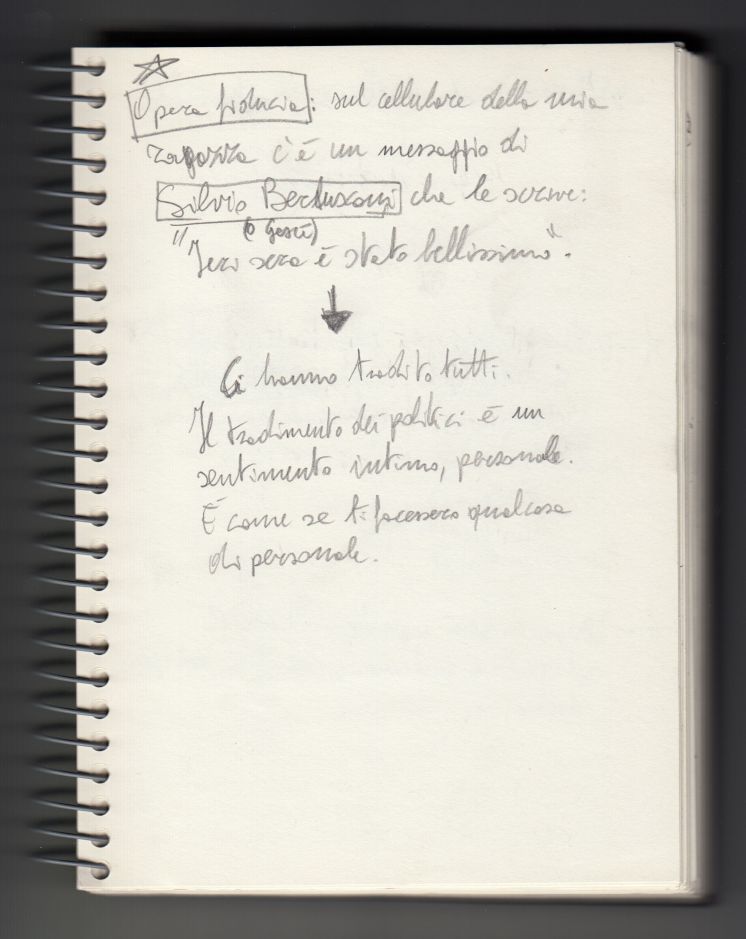 Opera fiducia: sul cellulare della mia
ragazza c'è un messaggio di
Silvio Berlusconi che le scrive:
(o Gesù)
"Ieri sera è stato bellissimo".
Ci hanno tradito tutti.
Il tradimento dei politici è un
sentimento intimo, personale.
È come se ti facessero qualcosa
di personale.